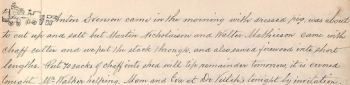 Anton Svenson came in the morning with dressed pig, was about
to cut up and salt but Martin Nicholaison and Walter Mathieson came with
chaff cutter and we put the stack through, and also sawed firewood into short
lengths. Put 70 sacks of chaff into shed will top remainder tomorrow, it is covered
tonight. Mr Walker helping. Mom and Eva at Dr tonight by invitation